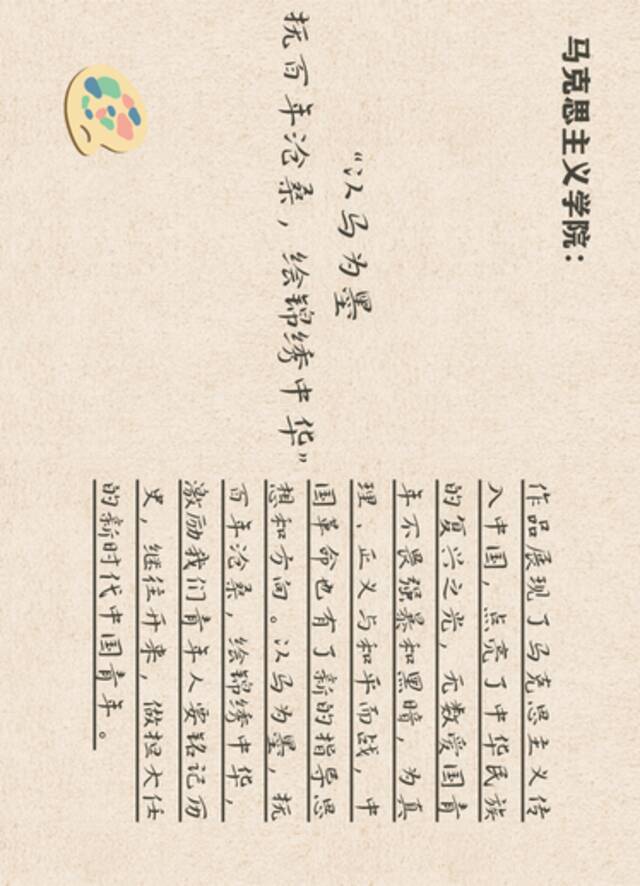 马克思主义学院：
“以马为墨
抚百年沧桑，绘锦绣中华”
作品展现了马克思主义传
入中国，点亮了中华民族
的复兴之光，无数爱国青
年不畏强暴和黑暗，为真
理、正义与和平而战，中
国革命也有了新的指导思
想和方向。以马为墨，抚
百年沧桑，绘锦绣中华，
激励我们青年人要铭记历
史，继往开来，做担大任
的新时代中国青年。